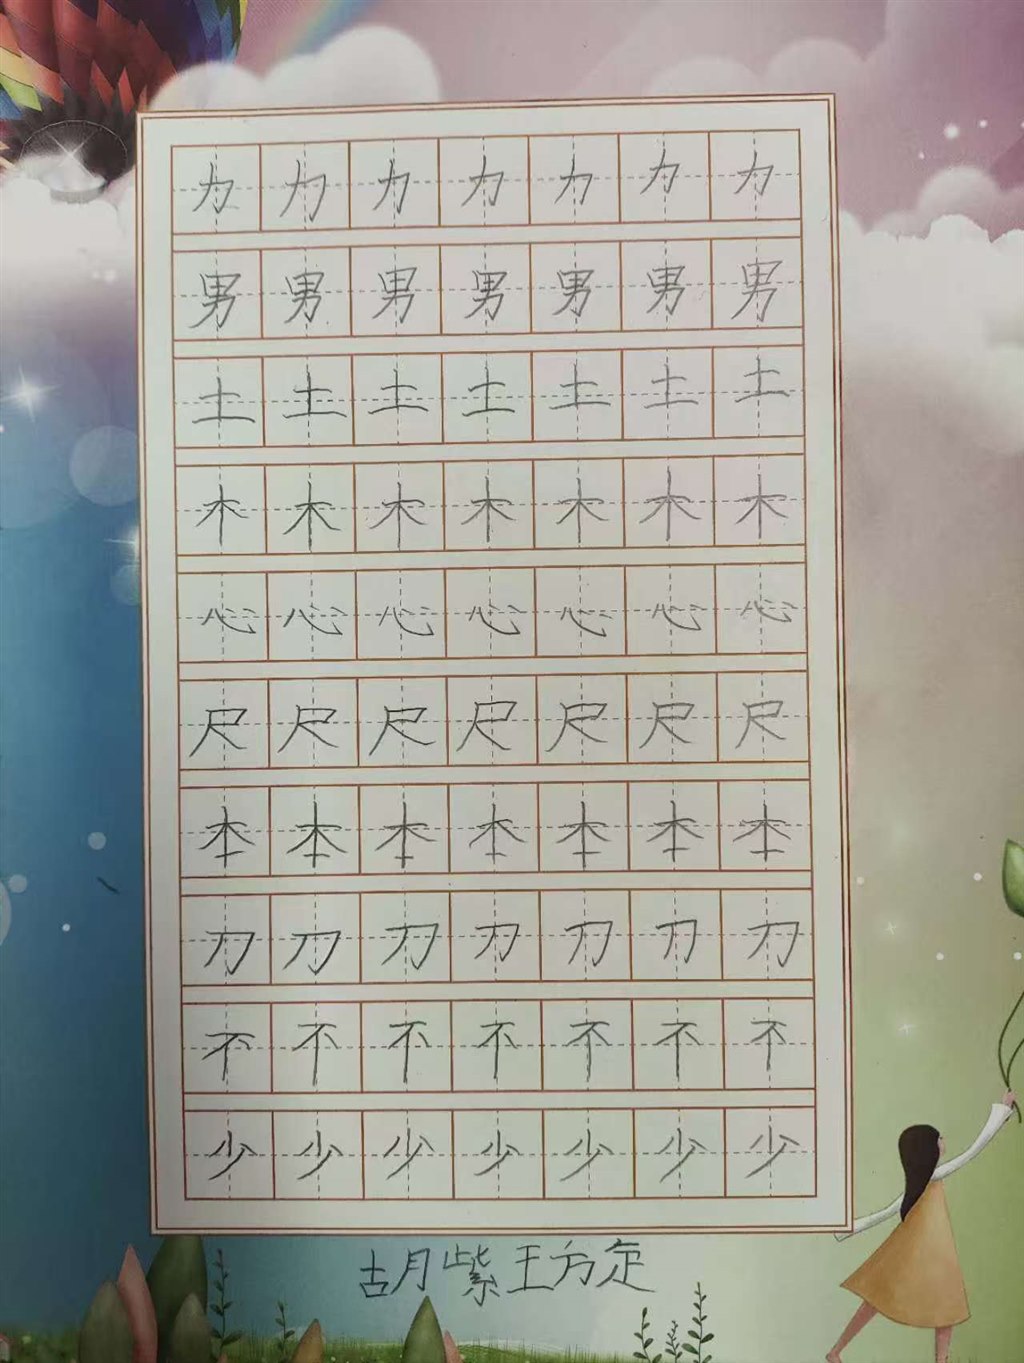 力力力力力力力
男男男男男男男
土土土土土土土
木木木木木木木
心心心心心心心
尺尺尺尺尺尺尺
本本本本本本本
刀刀刀刀刀刀刀
不不不不不不不
少少少少少少少
胡紫王方定